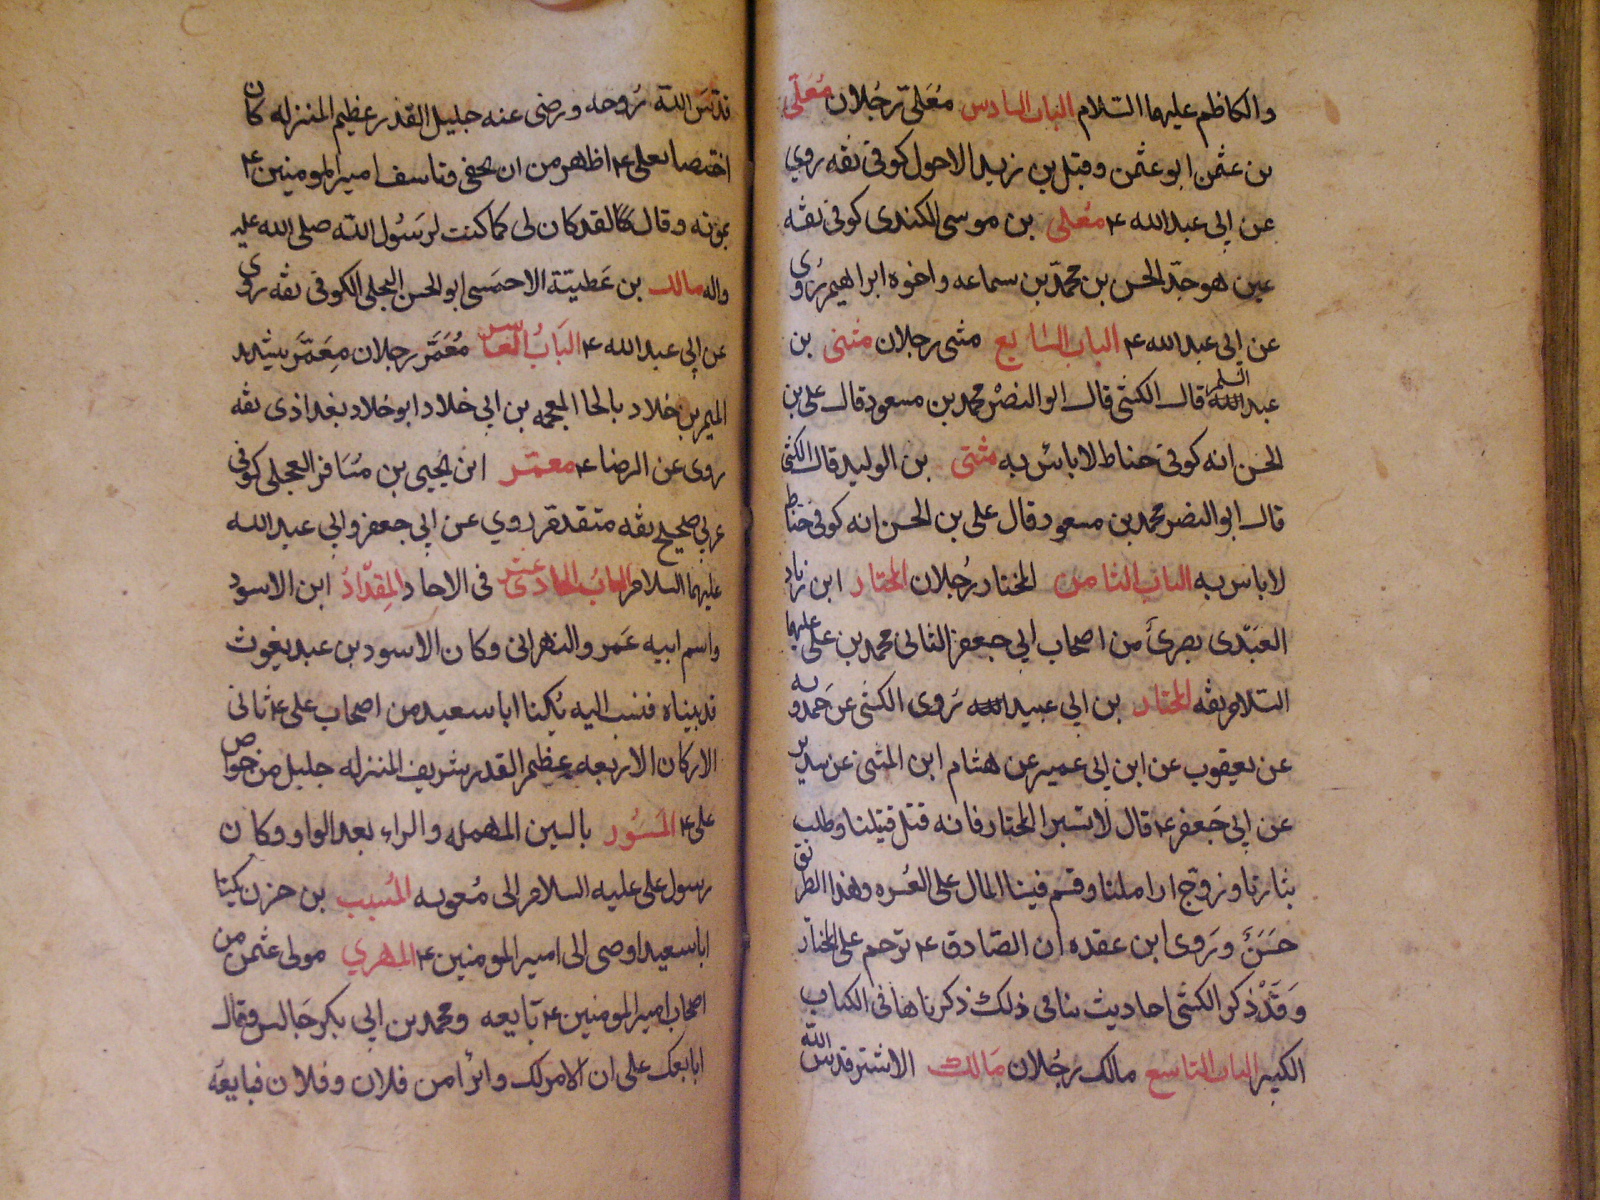 والكاظم عليهما السلام الباب السادس معلى رجلان معلى
بن عثمن ابو عثمن وقيل بن زيد الاحول كوفى ثقه روي
عن ابي عبد الله ع معلى بن موسى الكندى كوفى ثقه
عين هو جد الحسن بن محمد بن سماعه واخوه ابراهيم روى
عن ابي عبد الله ع الباب السابع مثنى رجلان مثنى بن
عبد السلم قال الكشى قال ابو النضر محمد بن مسعود قال على بن
الحسن انه كوفى حناط لا باس به مثنى بن الوليد قال الكشى
قال ابو النضر محمد بن مسعود قال على بن الحسن انه كوفى حناط
لا باس به الباب الثامن المختار رجلان المختار ابن زياد
العبدى بصرى من اصحاب ابي جعفر الثانى محمد بن على عليهما
السلام ثقه المختار بن ابي عبيد روى الكشى عن حمدويه
عن يعقوب عن ابن ابي عمير عن هشام ابن المثنى عن سدير
عن ابي جعفر ع قال لا تسبوا المختار فانه قتل قتلنا وطلب
بثارنا وزوج اراملنا وقسم فينا المال على العسره وهذا الطريق
حسن وروى ابن عقده ان الصادق ع ترحم على المختار
وقد ذكر الكشى احاديث تنافى ذلك ذكرناها فى الكتاب
الكبير الباب التاسع مالك رجلان مالك الاشتر قدس الله
قدس الله روحه ورضى عنه جليل القدر عظيم المنزله كان
اختصاصه بعلى ع اظهر من ان يخفى وتاسف امير المومنين ع
بموته وقال لقد كان لى كما كنت لرسول الله صلى الله عليه
واله مالك بن عطية الاحمسى ابو الحسن البجلى الكوفى ثقه روى
عن ابي عبد الله ع الباب العاشر معمر رجلان معمر بتشديد
الميم بن خلاد بالخا المعجمه بن ابي خلاد ابو خلاد بغداذى ثقه
روى عن الرضا ع معمر ابن يحيى بن مسافر العجلى كوفى
عربي صحيح ثقه متقدم روي عن ابي جعفر وابي عبد الله
عليهما السلام الباب الحادى عشر فى الاحاد المقداد ابن الاسود
واسم ابيه عمرو البهرانى وكان الاسود بن عبد يغوث
قد تبناه فنسب اليه يكنا ابا سعيد من اصحاب على ع ثانى
الاركان الاربعه عظيم القدر شريف المنزله جليل من خواص
على ع المسور بالسين المهمله والراء بعد الواو وكان
رسول على عليه السلام الى معويه المسيب بن حزن يكنا
ابا سعيد اوصى الى امير المومنين ع المهري مولى عثمن من
اصحاب امير المومنين ع بايعه ومحمد بن ابي بكر جالس وقال
ابايعك على ان الامر لك وابرأ من فلان وفلان فبايعه